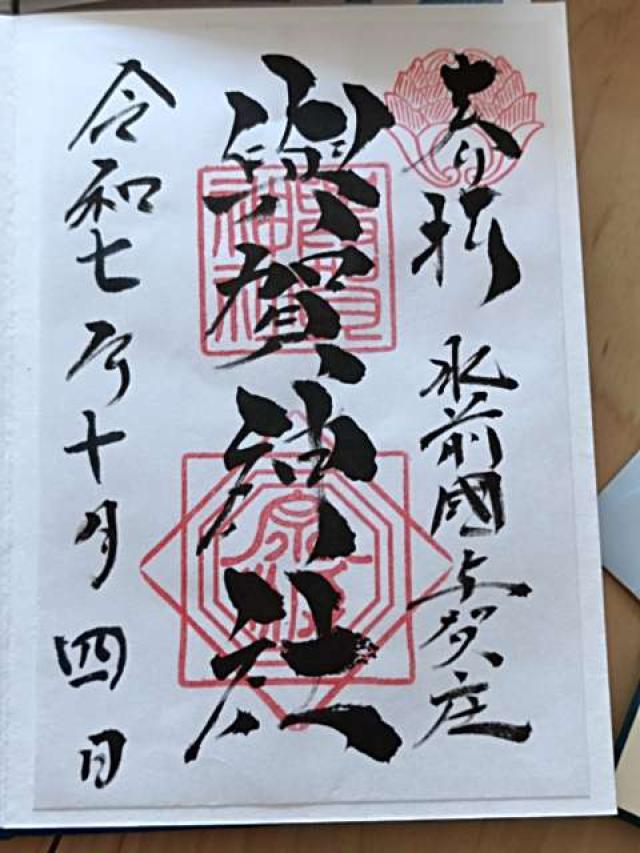 奉拝
肥前國与賀庄
與賀神社
令和七年十月四日